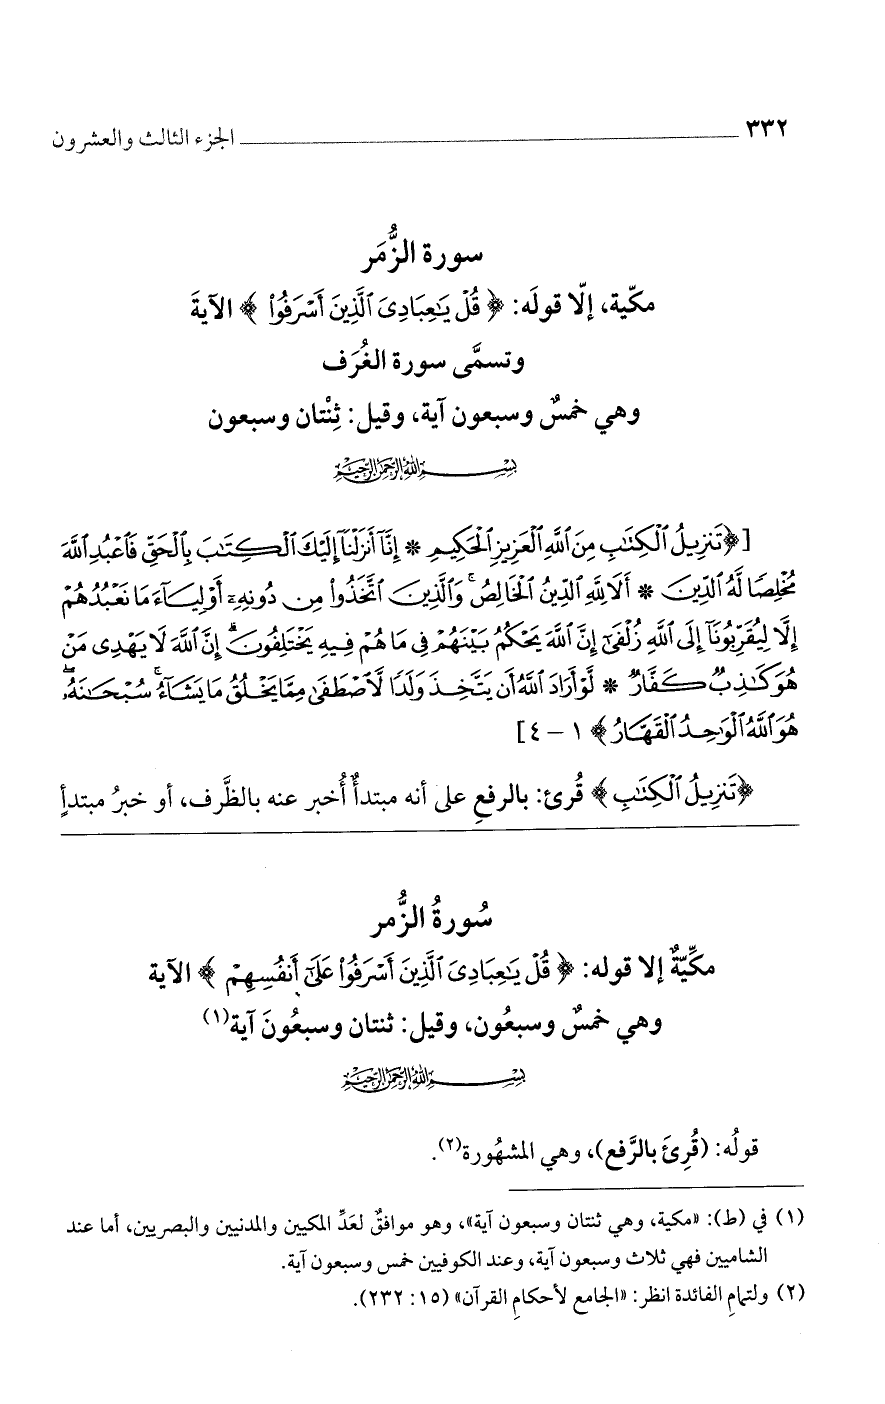 ٣٣٢ الجزء الثالث والعشرون
سورة الزُّمَر
مكّية، إلّا قولَه: ﴿قُلْ يَٰعِبَادِيَ ٱلَّذِينَ أَسْرَفُوا۟﴾ الآيةَ
وتسمَّى سورة الغُرَف
وهي خمسٌ وسبعون آية، وقيل: ثِنْتان وسبعون
بِسْمِ ٱللَّهِ ٱلرَّحْمَٰنِ ٱلرَّحِيمِ
[﴿تَنزِيلُ ٱلْكِتَٰبِ مِنَ ٱللَّهِ ٱلْعَزِيزِ ٱلْحَكِيمِ * إِنَّآ أَنزَلْنَآ إِلَيْكَ ٱلْكِتَٰبَ بِٱلْحَقِّ فَٱعْبُدِ ٱللَّهَ
مُخْلِصًا لَّهُ ٱلدِّينَ * أَلَا لِلَّهِ ٱلدِّينُ ٱلْخَالِصُ ۚ وَٱلَّذِينَ ٱتَّخَذُوا۟ مِن دُونِهِۦٓ أَوْلِيَآءَ مَا نَعْبُدُهُمْ
إِلَّا لِيُقَرِّبُونَآ إِلَى ٱللَّهِ زُلْفَىٰٓ إِنَّ ٱللَّهَ يَحْكُمُ بَيْنَهُمْ فِى مَا هُمْ فِيهِ يَخْتَلِفُونَ ۗ إِنَّ ٱللَّهَ لَا يَهْدِى مَنْ
هُوَ كَٰذِبٌ كَفَّارٌ * لَّوْ أَرَادَ ٱللَّهُ أَن يَتَّخِذَ وَلَدًا لَّٱصْطَفَىٰ مِمَّا يَخْلُقُ مَا يَشَآءُ ۚ سُبْحَٰنَهُۥ ۖ
هُوَ ٱللَّهُ ٱلْوَٰحِدُ ٱلْقَهَّارُ﴾ ١ – ٤]
﴿تَنزِيلُ ٱلْكِتَٰبِ﴾ قُرئ: بالرفعِ على أنه مبتدأٌ أُخبر عنه بالظَّرف، أو خبرُ مبتدأٍ
سُورةُ الزُّمر
مكِّيّةٌ إلا قوله: ﴿قُلْ يَٰعِبَادِيَ ٱلَّذِينَ أَسْرَفُوا۟ عَلَىٰٓ أَنفُسِهِمْ﴾ الآية
وهي خمسٌ وسبعُون، وقيل: ثنتان وسبعُونَ آية(١)
بِسْمِ ٱللَّهِ ٱلرَّحْمَٰنِ ٱلرَّحِيمِ
قولُه: (قُرِئَ بالرَّفع)، وهي المشهُورة(٢).
(١) في (ط): «مكية، وهي ثنتان وسبعون آية»، وهو موافقٌ لعَدِّ المكيين والمدنيين والبصريين، أما عند
الشاميين فهي ثلاث وسبعون آية، وعند الكوفيين خمس وسبعون آية.
(٢) ولتمامِ الفائدة انظر: «الجامع لأحكامِ القرآن» (١٥: ٢٣٢).